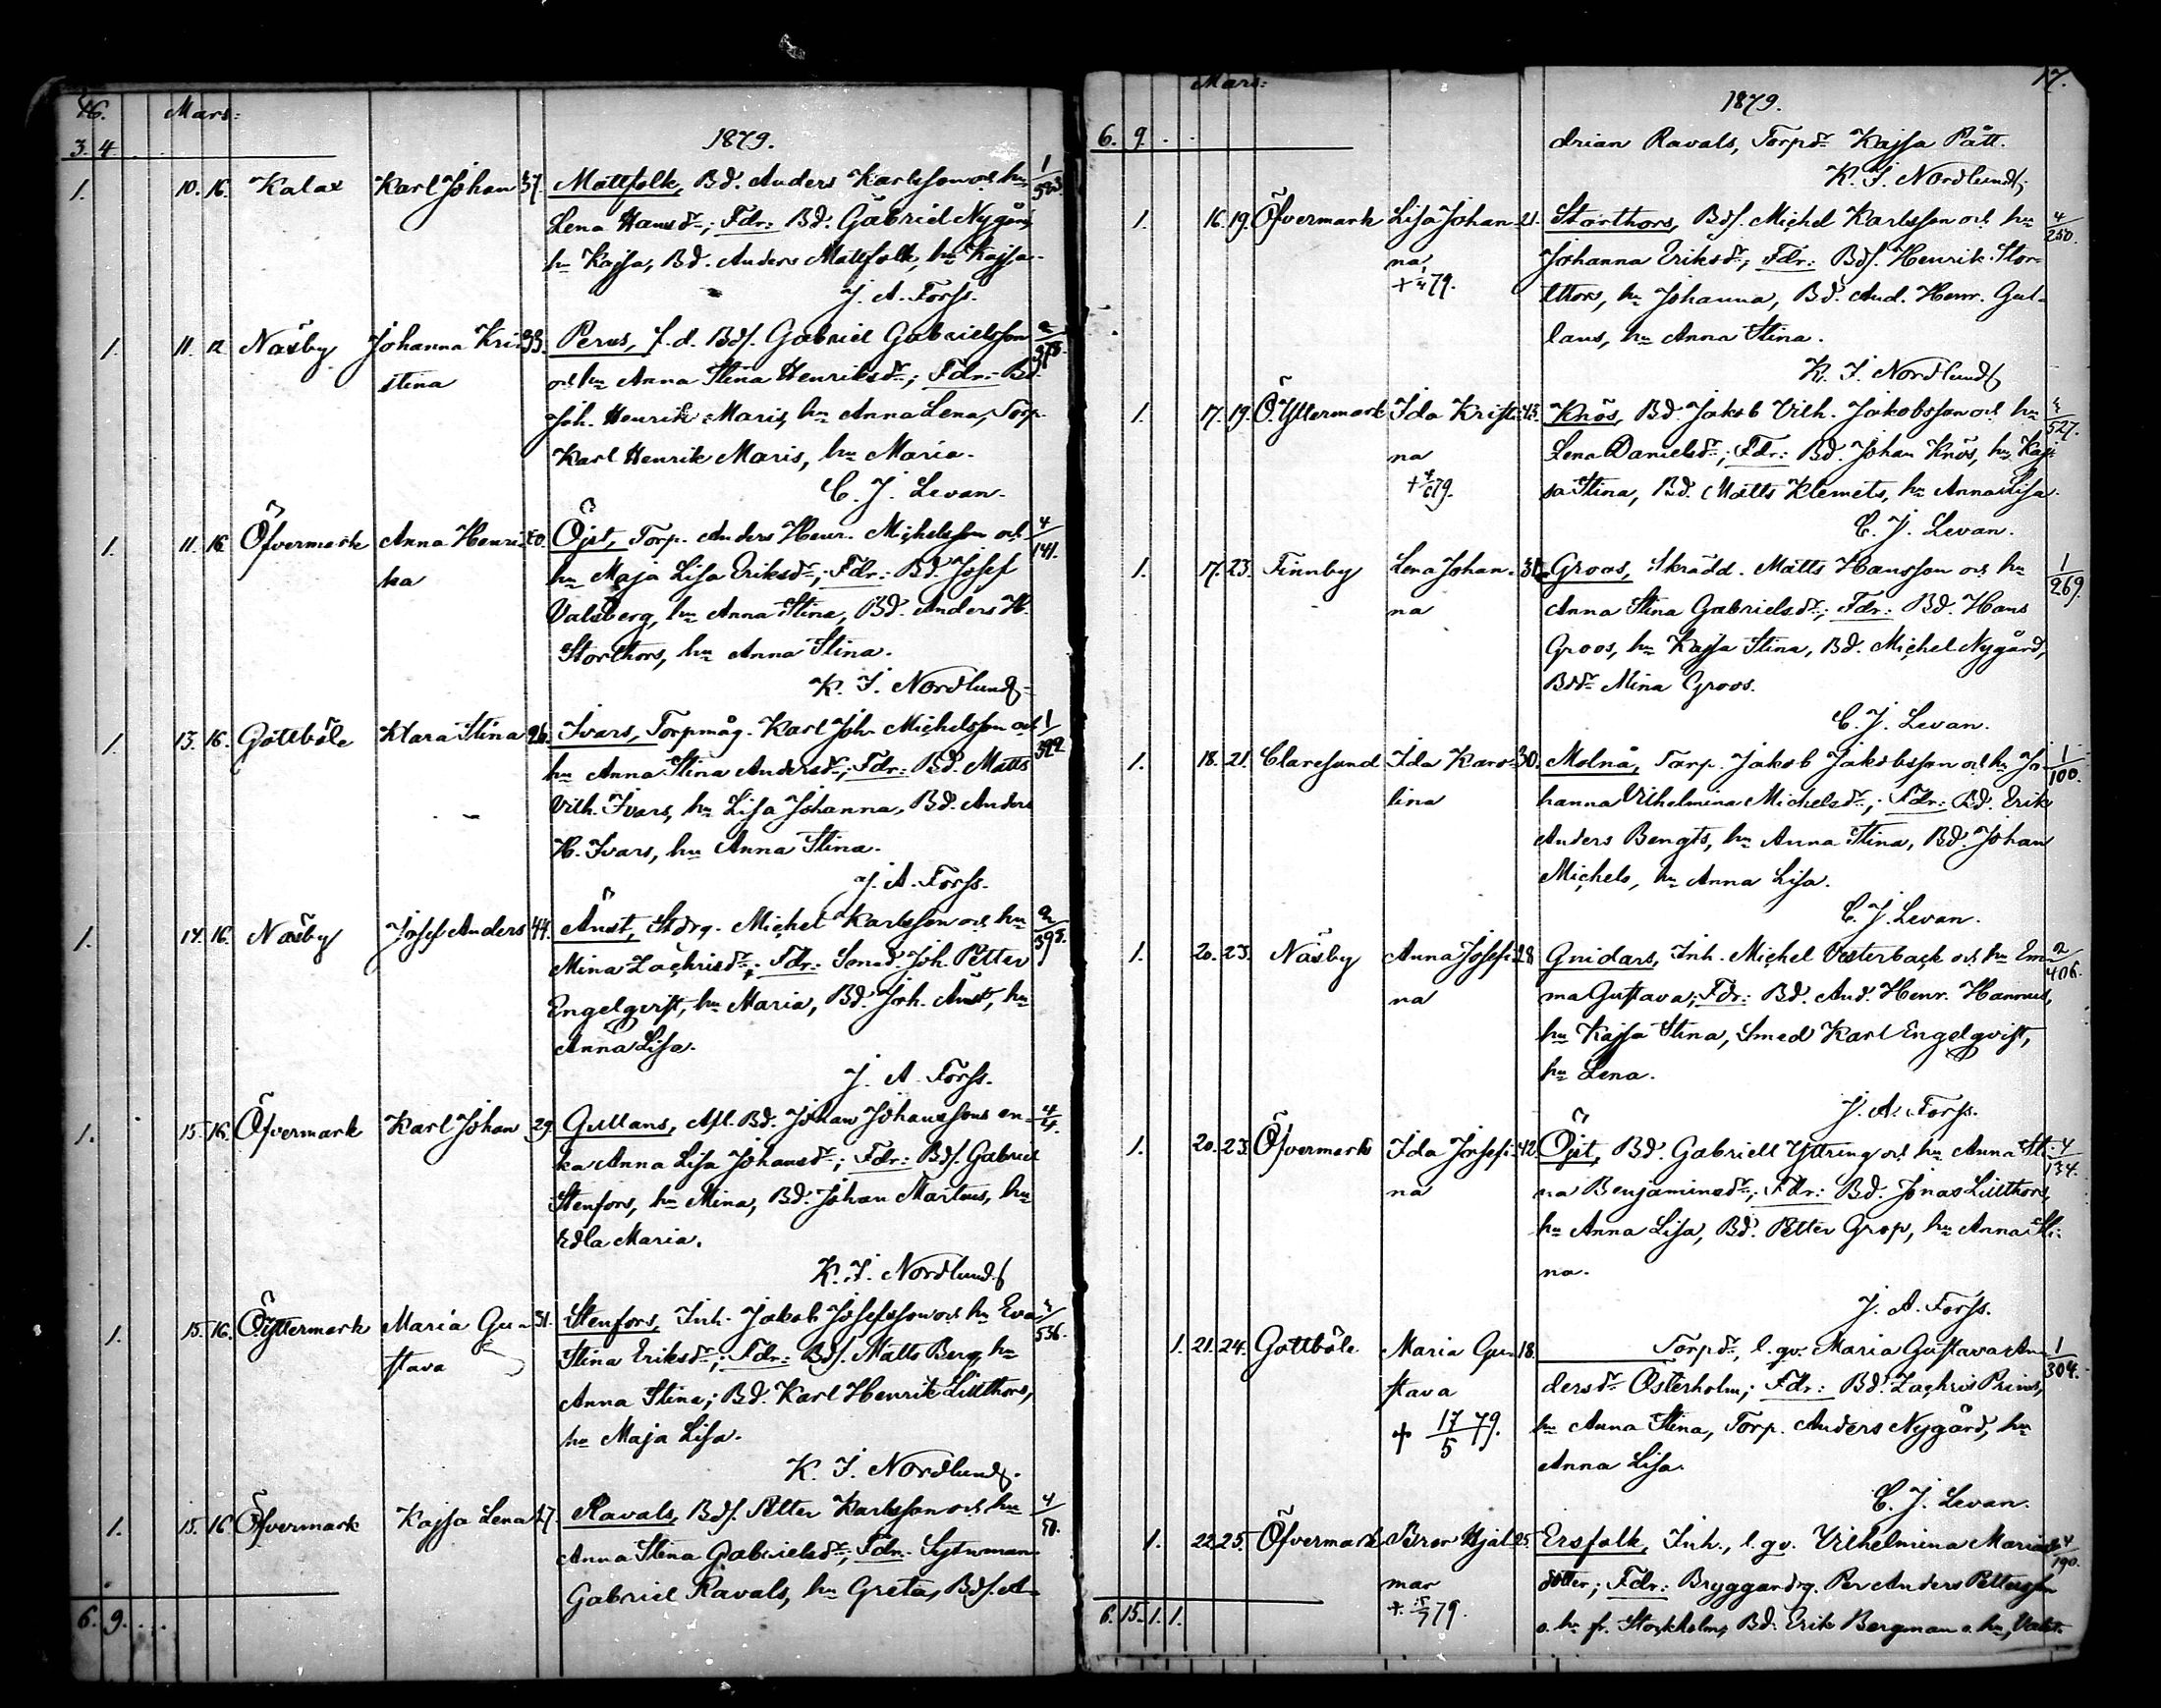 46. Mars:
1879.
3. 4.
1. 10. 16. Kalax Karl Johan 37. Mattfolk, Bd. Anders Karlsson och hu
Lena Hansdr; Fdr: Bd. Gabriel Nygård,
hu Kajsa, Bd. Anders Mattfolk, hu Kajsa.
J. A. Forss.
1. 11. 12. Näsby Johanna Kri- 33. Perus, f. d. Bdf. Gabriel Gabrielsson 2/378.
stina och hu Anna Stina Henriksdr; Fdr: Bd.
Joh. Henrik Maris, hu Anna Lena, Torp.
Karl Henrik Maris, hu Maria.
C. J. Levan.
1. 11. 16. Öfvermark Anna Henri- 20. Öjst, Torp. Anders Henr. Michelsson och 4/141.
ka hu Maja Lisa Eriksdr; Fdr: Bd. Josef
Valsberg, hu Anna Stina, Bd. Anders H.
Storthors, hu Anna Stina.
K. I. Nordlund.
1. 13. 16. Gottböle Klara Stina 26. Ivars, Torpmåg. Karl Joh. Michelsson och 1/322
hu Anna Stina Andersdr; Fdr: Bd. Matts
Vilh. Ivars, hu Lisa Johanna, Bd. Anders
H. Ivars, hu Anna Stina.
J. A. Forss.
1. 14. 16. Näsby Josef Anders 44. Änst, Stdrg. Michel Karlsson och hu 2/398.
Mina Zachrisdr; Fdr: Smed. Joh. Petter
Engelqvist, hu Maria, Bd. Joh. Änst, hu
Anna Lisa.
J. A. Forss.
1. 15. 16. Öfvermark Karl Johan 29. Gullans, Afl. Bd. Johan Johanssons en- 4/4.
ka Anna Lisa Johansdr; Fdr: Bdf. Gabriel
Stenfors, hu Mina, Bd. Johan Martens, hu
Edla Maria.
K. I. Nordlund
1. 15. 16. Ö.Yttermark Maria Gu- 31. Stenfors, Inh. Jakob Josefsson och hu Eva 3/536.
stava Stina Eriksdr; Fdr: Bdf. Matts Berg, hu
Anna Stina; Bd. Karl Henrik Lillthors,
hu Maja Lisa.
K. I. Nordlund.
1. 15. 16 Öfvermark Kajsa Lena 27. Ravals, Bdf. Petter Karlsson och hu
Anna Stina Gabrielsdr; Fdr: Sytnman
Gabriel Ravals, hu Greta, Bdf. A-
6. 9.
Mars: 17.
1879.
6. 9. drian Ravals, Torpdr Kajsa Pått.
K. I. Nordlund.
1. 16. 19. Öfvermark Lisa Johan- 21. Storthors, Bdf. Michel Karlsson och hu 4/250.
na Johanna Eriksdr; Fdr: Bdf. Henrik Stor-
79. thors, hu Johanna, Bd. And. Henr. Gul-
lans, hu Anna Stina.
K. I. Nordlund
1. 17. 19. Ö.Yttermark Ida Kristi- Knös, Bd. Jakob Vilh. Jakobsson och hu 3/527.
na Lena Danielsdr; Fdr: Bd. Johan Knös, hu Kaj-
79. sa Stina, Bd. Matts Klemets, hu Anna Lisa.
C. J. Levan.
1. 17. 23. Finnby Lena Johan- Groos, Skrädd. Matts Hansson och hu 1/269.
na Anna Stina Gabrielsdr; Fdr: Bd. Hans
Groos, hu Kajsa Stina, Bd. Michel Nygård,
Bddr Mina Groos.
C. J. Levan.
1. 18. 21. Claresund Ida Karo- 30. Molnå, Torp. Jakob Jakobsson och hu Jo- 1/100.
lina hanna Vilhelmina Michelsdr; Fdr: Bd. Erik
Anders Bengts, hu Anna Stina, Bd. Johan
Michels, hu Anna Lisa.
C. J. Levan.
1. 20. 23. Näsby Anna Josefi- 28 Gnidars, Inh. Michel Vesterback och hu Em- 2/406.
na ma Gustava; Fdr: Bd. And. Henr. Hannus,
hu Kajsa Stina, Smed Karl Engelqvist,
hu Lena.
J. A. Forss.
1. 20. 23. Öfvermark Ida Josefi- 42. Öjst, Bd. Gabriell Yttring och hu Anna Sti- 4/134.
na na Benjaminsdr; Fdr: Bd. Jonas Lillthors,
hu Anna Lisa, Bd. Petter Grop, hu Anna Sti-
na.
J. A. Forss.
1. 21. 24. Gottböle Maria Gu- 18. Torpdr, l. qv. Maria Gustava An- 1/304.
stava dersdr Österholm; Fdr: Bd. Zachris Prins,
+ 17/5 79. hu Anna Stina, Torp. Anders Nygård, hu
Anna Lisa.
C. J. Levan.
1. 22. 25. Öfvermark Bror Hjal- 25. Ersfolk, Inh., l. qv. Vilhelmina Maria 4/190.
mar dotter; Fdr: Bryggardrg. Per Anders Pettersson
79. o. hu fr. Stockholm, Bd. Erik Bergman o. hu,
6. 15. 1. 1.